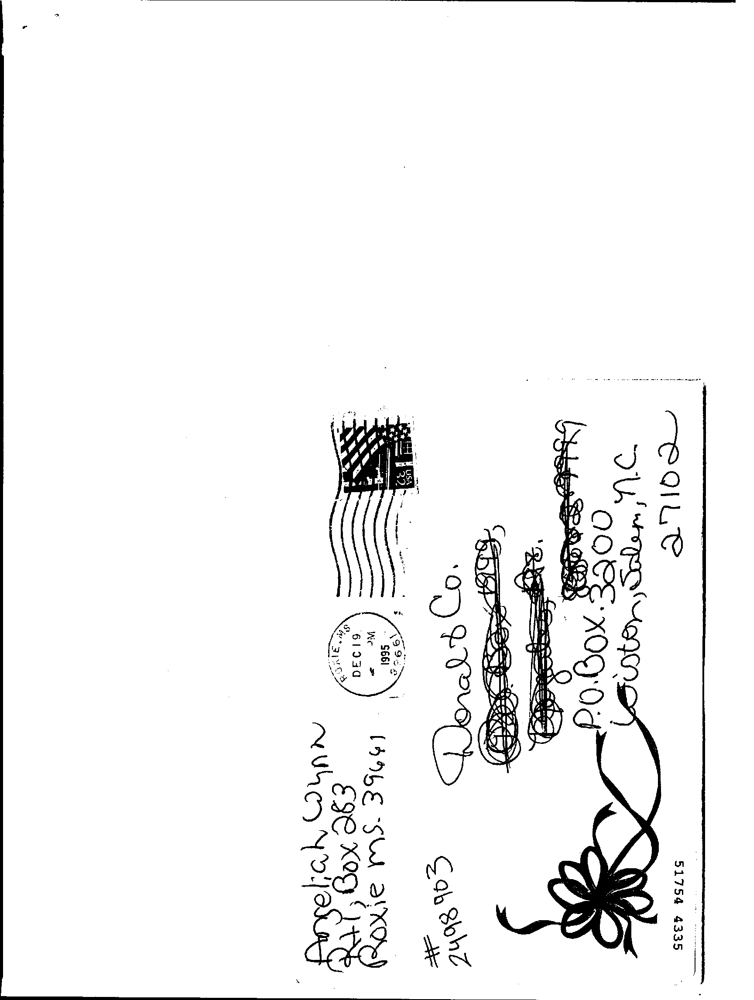 Angeliah Wynn
Rt 1, Box 263
Roxie ms. 39661
ROXIE, MS
DEC 19
PM
1995
39661
USA
32
#
2498903
Donal & Co.
P.O. Box. 3200
Wiston, Salem, N.C.
27102
51754 4335